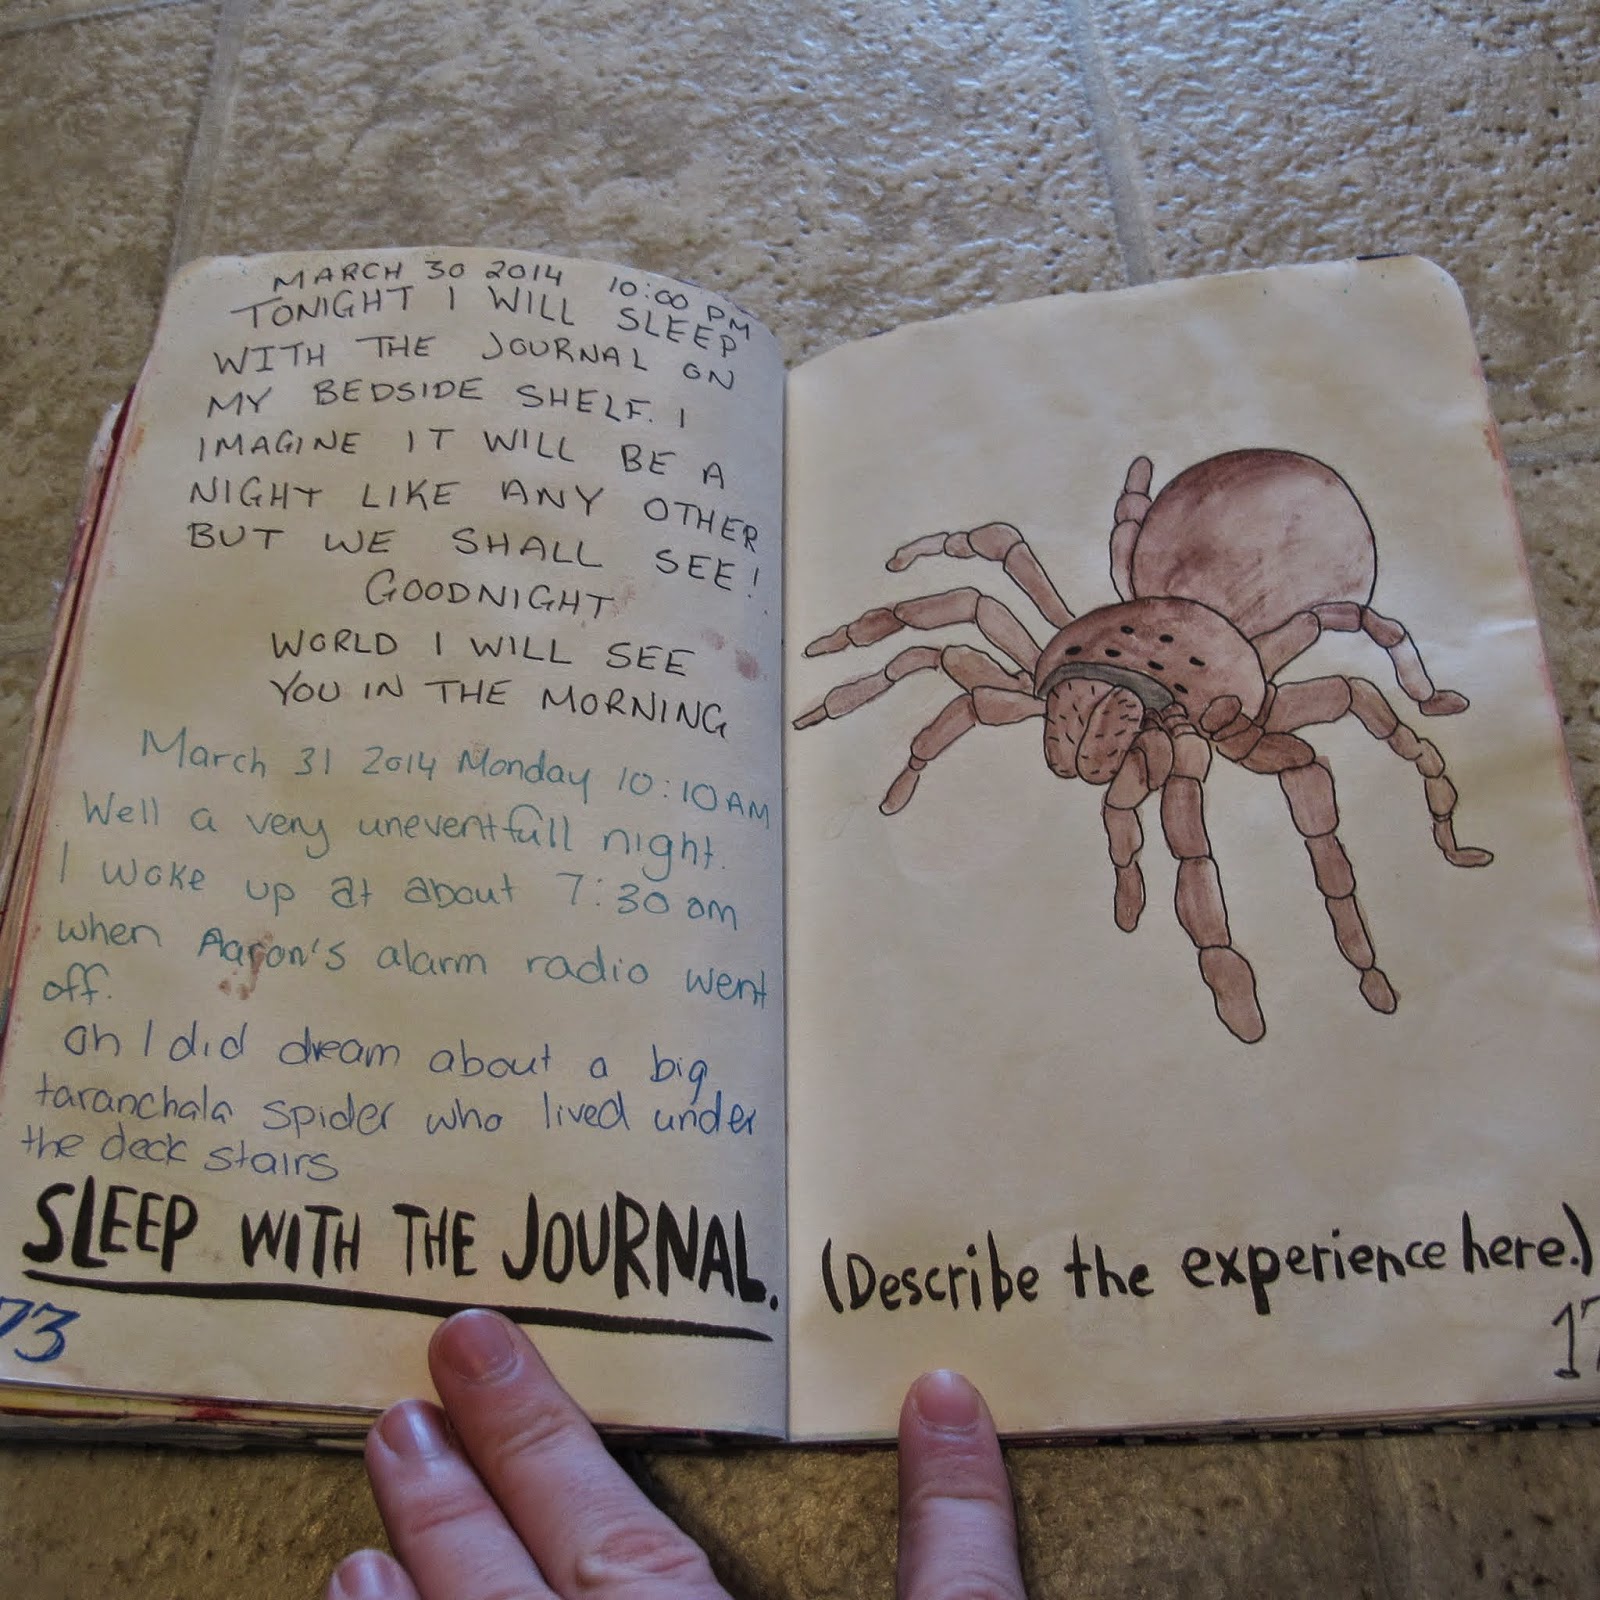 MARCH 30 2014 10:00 PM
TONIGHT I WILL SLEEP
WITH THE JOURNAL ON
MY BEDSIDE SHELF. I
IMAGINE IT WILL BE A
NIGHT LIKE ANY OTHER
BUT WE SHALL SEE!
GOODNIGHT
WORLD I WILL SEE
YOU IN THE MORNING
March 31 2014 Monday 10:10AM
Well a very uneventfull night.
I woke up at about 7:30 am
when Aaron's alarm radio went
off.
oh I did dream about a big
taranchala spider who lived under
the deck stairs
SLEEP WITH THE JOURNAL.
73
(Describe the experience here.)
17